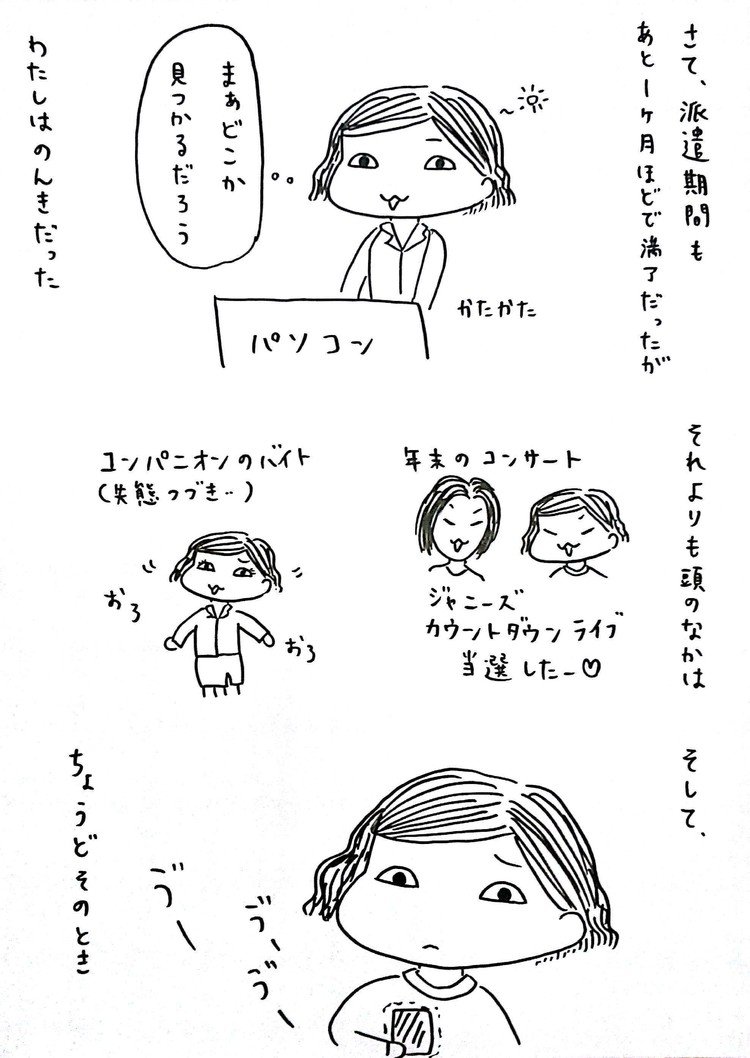 さて、派遣期間も
あと1ヶ月ほどで満了だったが
まぁどこか
見つかるだろう
わたしはのんきだった
かたかた
パソコン
それよりも頭のなかは
年末のコンサート
ジャニーズ
カウントダウンライブ
当選したー♡
コンパニオンのバイト
(失態つづき‥)
おろ
おろ
そして、
ちょうどそのとき
ヴー
ヴー
ヴー